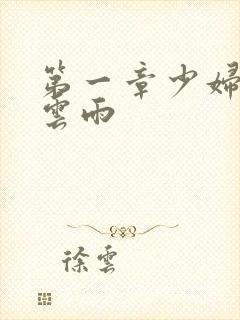 第一章少婦
雲雨
徐雲